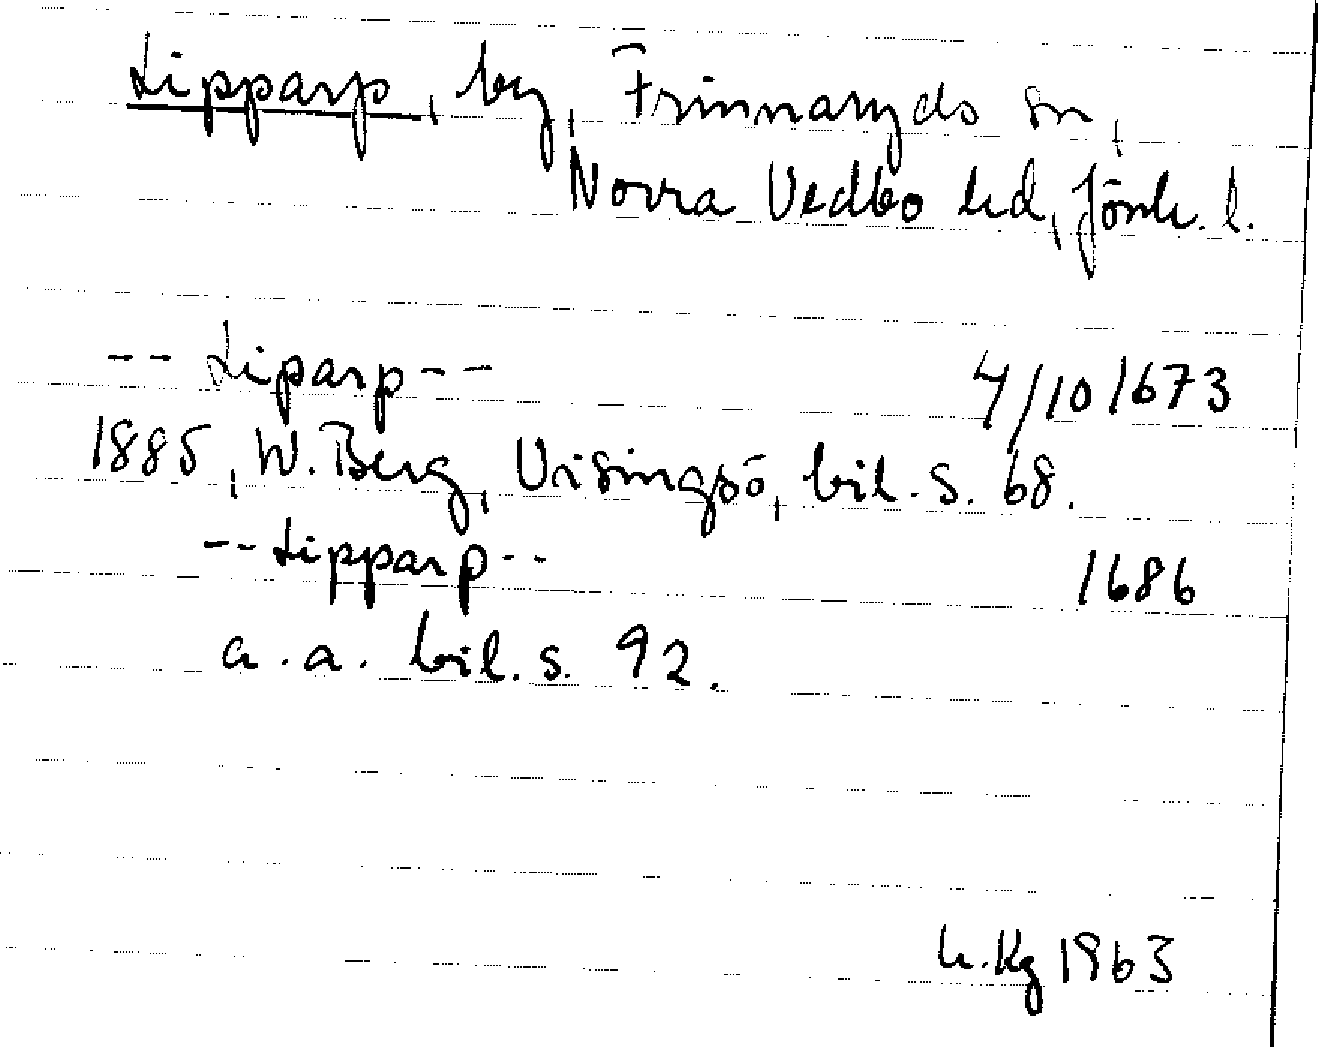 Lipparp, by, Frinnaryds sn,
Norra Vedbo hd, Jönk. l.
-- Liparp -- 4/10 1673
1885, W. Berg, Visingsö, bil. s. 68.
-- Lipparp -- 1686
a. a. bil. s. 92.
Kg 1963